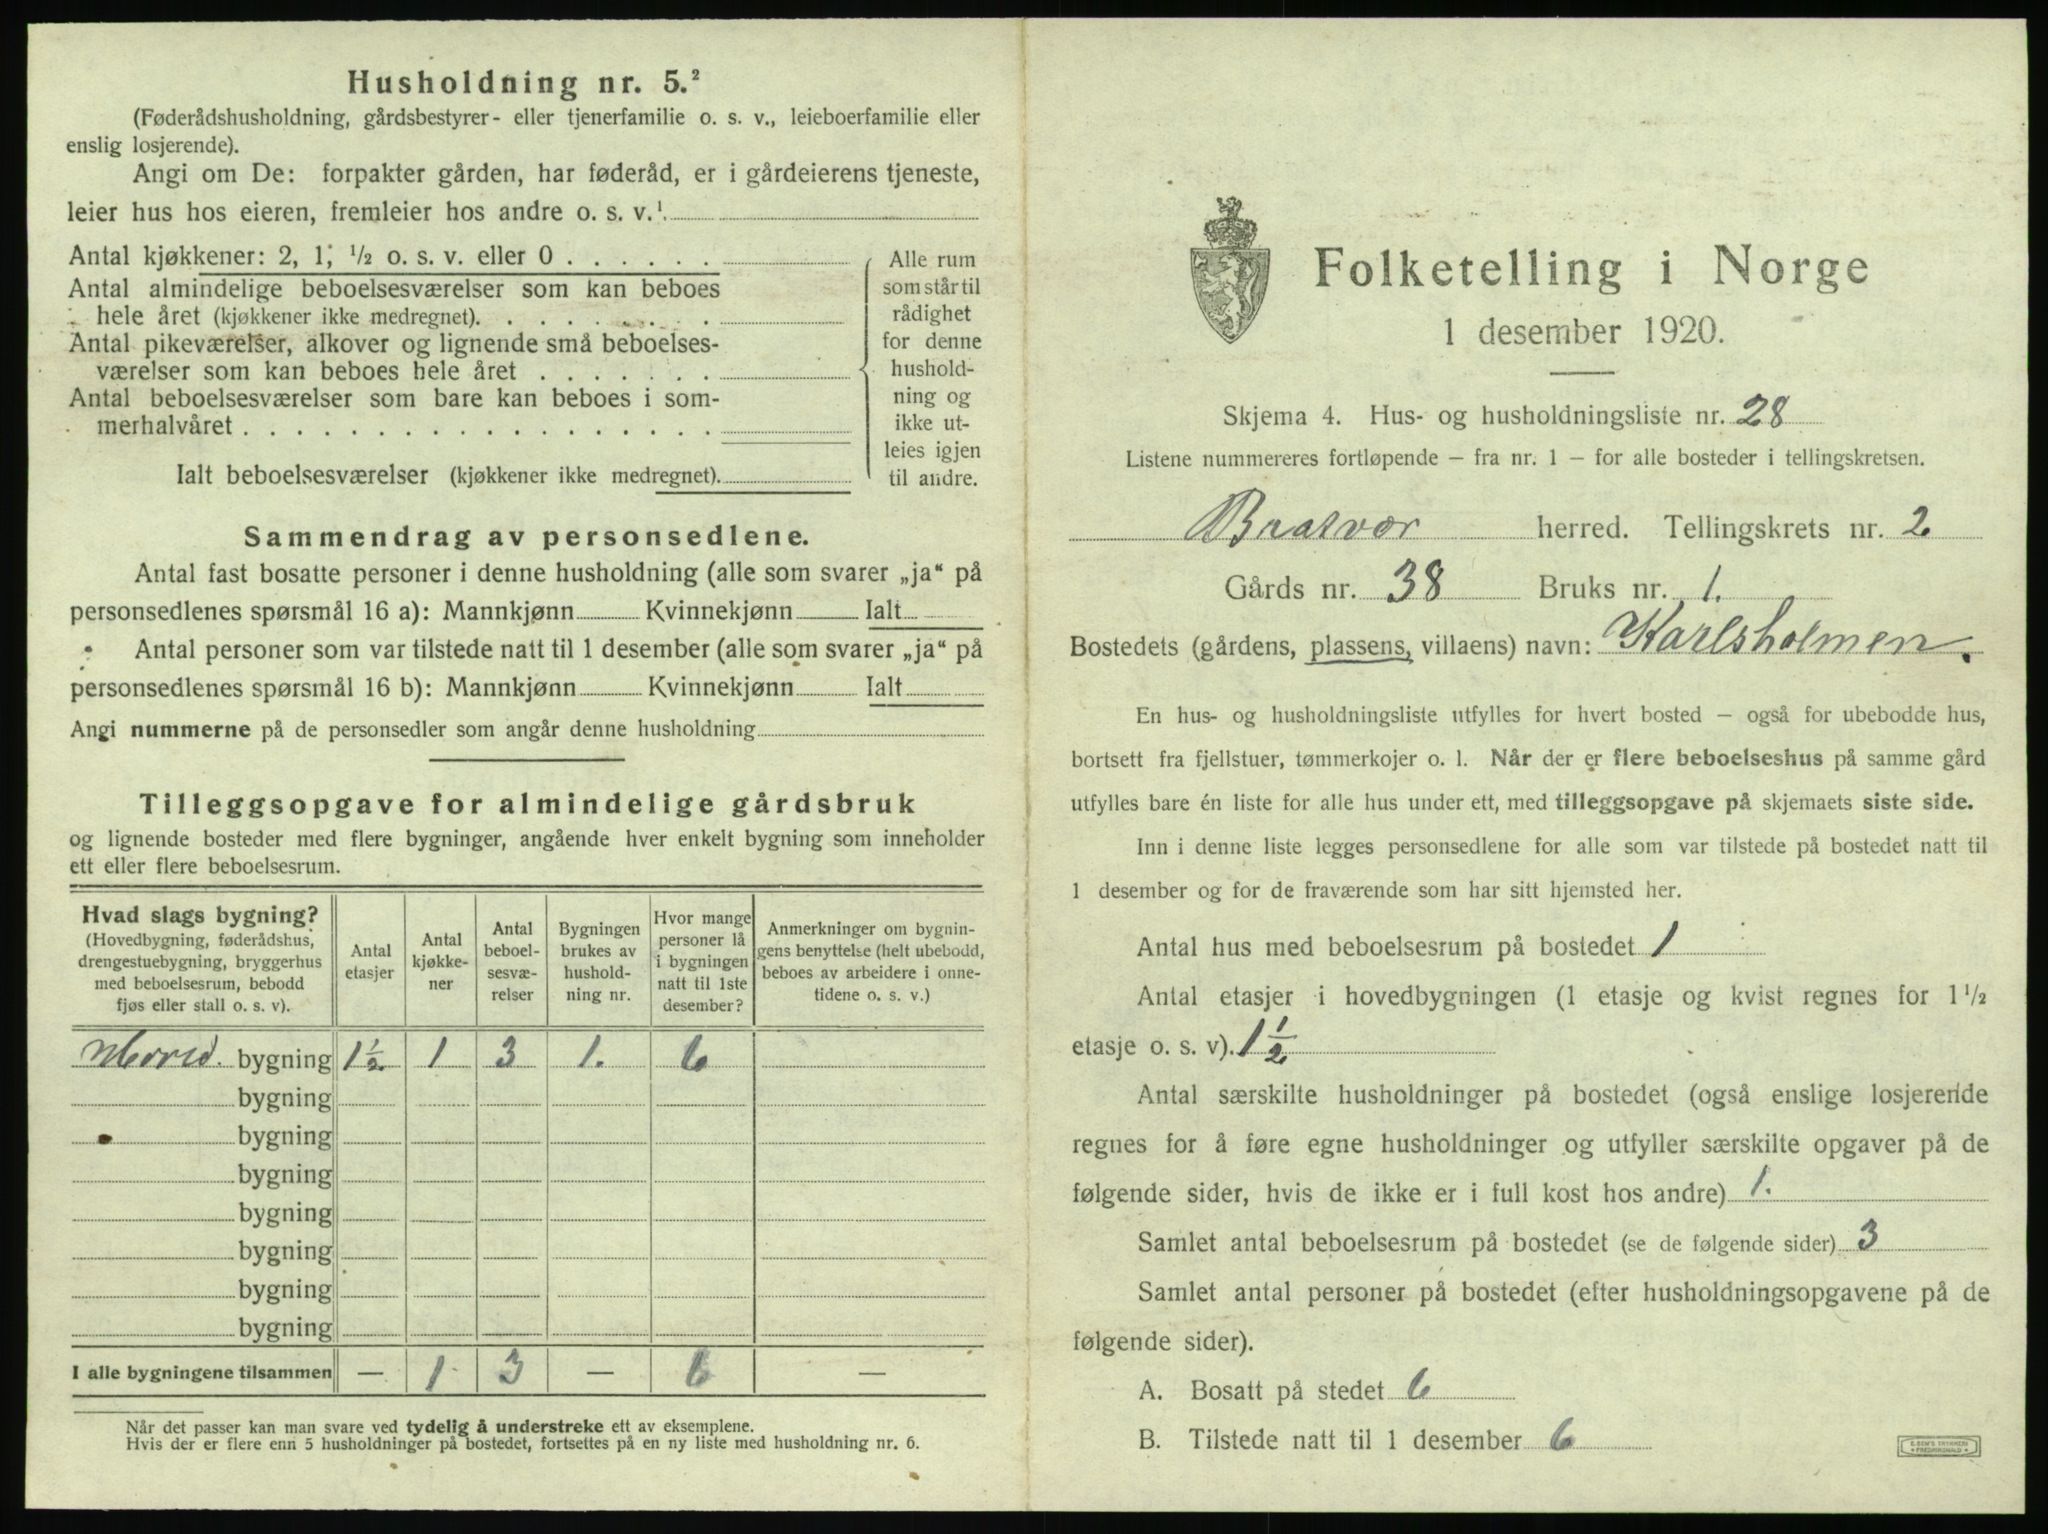 Husholdning nr. 5.²
(Føderådshusholdning, gårdsbestyrer- eller tjenerfamilie o. s. v., leieboerfamilie eller
enslig losjerende).
Angi om De: forpakter gården, har føderåd, er i gårdeierens tjeneste,
leier hus hos eieren, fremleier hos andre o. s. v.¹
Antal kjøkkener: 2, 1, ½ o. s. v. eller 0 . . . . . .
Antal almindelige beboelsesværelser som kan beboes
hele året (kjøkkener ikke medregnet). . . . . . . .
Antal pikeværelser, alkover og lignende små beboelses-
værelser som kan beboes hele året . . . . . . .
Antal beboelsesværelser som bare kan beboes i som-
merhalvåret . . . . . . . . . . . . . . . . . .
Ialt beboelsesværelser (kjøkkener ikke medregnet).
Alle rum
som står til
rådighet
for denne
hushold-
ning og
ikke ut-
leies igjen
til andre.
Sammendrag av personsedlene.
Antal fast bosatte personer i denne husholdning (alle som svarer „ja“ på
personsedlenes spørsmål 16 a): Mannkjønn Kvinnekjønn Ialt
Antal personer som var tilstede natt til 1 desember (alle som svarer „ja“ på
personsedlenes spørsmål 16 b): Mannkjønn Kvinnekjønn Ialt
Angi nummerne på de personsedler som angår denne husholdning
Tilleggsopgave for almindelige gårdsbruk
og lignende bosteder med flere bygninger, angående hver enkelt bygning som inneholder
ett eller flere beboelsesrum.
Hvad slags bygning?
(Hovedbygning, føderådshus,
drengestuebygning, bryggerhus
med beboelsesrum, bebodd
fjøs eller stall o. s. v).
Antal
etasjer
Antal
kjøkke-
ner
Antal
beboel-
sesvæ-
relser
Bygningen
brukes av
hushold-
ning nr.
Hvor mange
personer lå
i bygningen
natt til 1ste
desember?
Anmerkninger om bygnin-
gens benyttelse (helt ubebodd,
beboes av arbeidere i onne-
tidene o. s. v.)
Hoved. bygning 1½ 1 3 1. 6
bygning
bygning
bygning
bygning
bygning
bygning
bygning
I alle bygningene tilsammen — 1 3 — 6 —
Når det passer kan man svare ved tydelig å understreke ett av eksemplene.
Hvis der er flere enn 5 husholdninger på bostedet, fortsettes på en ny liste med husholdning nr. 6.
Folketelling i Norge
1 desember 1920.
Skjema 4. Hus- og husholdningsliste nr. 28
Listene nummereres fortløpende – fra nr. 1 – for alle bosteder i tellingskretsen.
Bratvær herred. Tellingskrets nr. 2
Gårds nr. 38 Bruks nr. 1.
Bostedets (gårdens, plassens, villaens) navn: Karlsholmen.
En hus- og husholdningsliste utfylles for hvert bosted – også for ubebodde hus,
bortsett fra fjellstuer, tømmerkojer o. l. Når der er flere beboelseshus på samme gård
utfylles bare én liste for alle hus under ett, med tilleggsopgave på skjemaets siste side.
Inn i denne liste legges personsedlene for alle som var tilstede på bostedet natt til
1 desember og for de fraværende som har sitt hjemsted her.
Antal hus med beboelsesrum på bostedet 1
Antal etasjer i hovedbygningen (1 etasje og kvist regnes for 1½
etasje o. s. v). 1½
Antal særskilte husholdninger på bostedet (også enslige losjerende
regnes for å føre egne husholdninger og utfyller særskilte opgaver på de
følgende sider, hvis de ikke er i full kost hos andre) 1.
Samlet antal beboelsesrum på bostedet (se de følgende sider) 3
Samlet antal personer på bostedet (efter husholdningsopgavene på de
følgende sider).
A. Bosatt på stedet 6
B. Tilstede natt til 1 desember 6